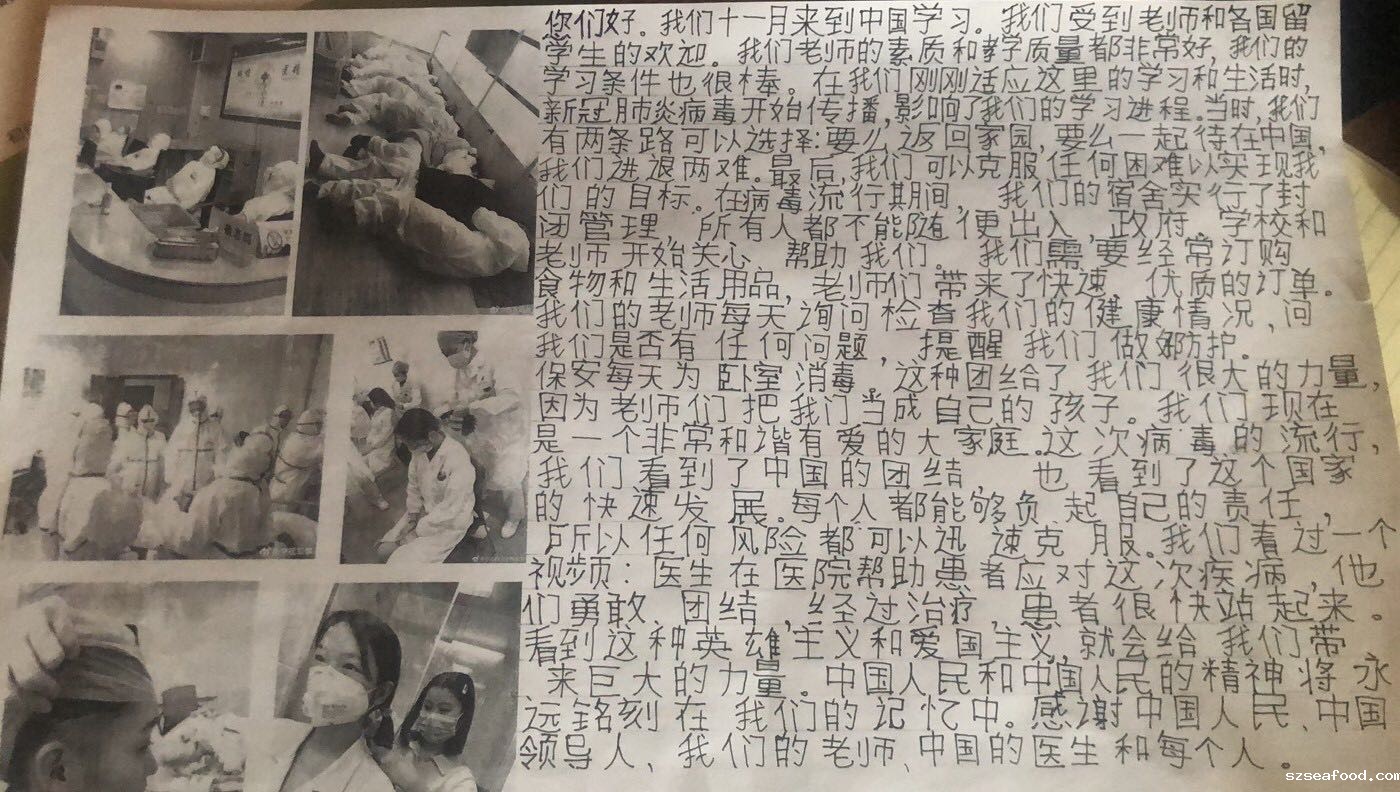 您们好。我们十一月来到中国学习。我们受到老师和各国留
学生的欢迎。我们老师的素质和教学质量都非常好，我们的
学习条件也很棒。在我们刚刚适应这里的学习和生活时，
新冠肺炎病毒开始传播，影响了我们的学习进程。当时，我们
有两条路可以选择：要么返回家园，要么一起待在中国，
我们进退两难。最后，我们可以克服任何困难以实现我
们的目标。在病毒流行期间，我们的宿舍实行了封
闭管理，所有人都不能随便出入，政府、学校和
老师开始关心 帮助我们。我们需要经常订购
食物和生活用品，老师们带来了快速 优质的订单。
我们的老师每天询问检查我们的健康情况，问
我们是否有任何问题，提醒我们做好防护。
保安每天为卧室消毒。这种团给了我们很大的力量，
因为老师们把我们当成自己的孩子。我们现在
是一个非常和谐有爱的大家庭。这次病毒的流行，
我们看到了中国的团结，也看到了这个国家
的快速发展。每个人都能够负起自己的责任，
所以任何风险都可以迅速克服。我们看过一个
视频：医生在医院帮助患者应对这次疾病，他
们勇敢、团结，经过治疗，患者很快站起来。
看到这种英雄主义和爱国主义，就会给我们带
来巨大的力量。中国人民和中国人民的精神将永
远铭刻在我们的记忆中。感谢中国人民、中国
领导人、我们的老师、中国的医生和每个人。
szseafood.com